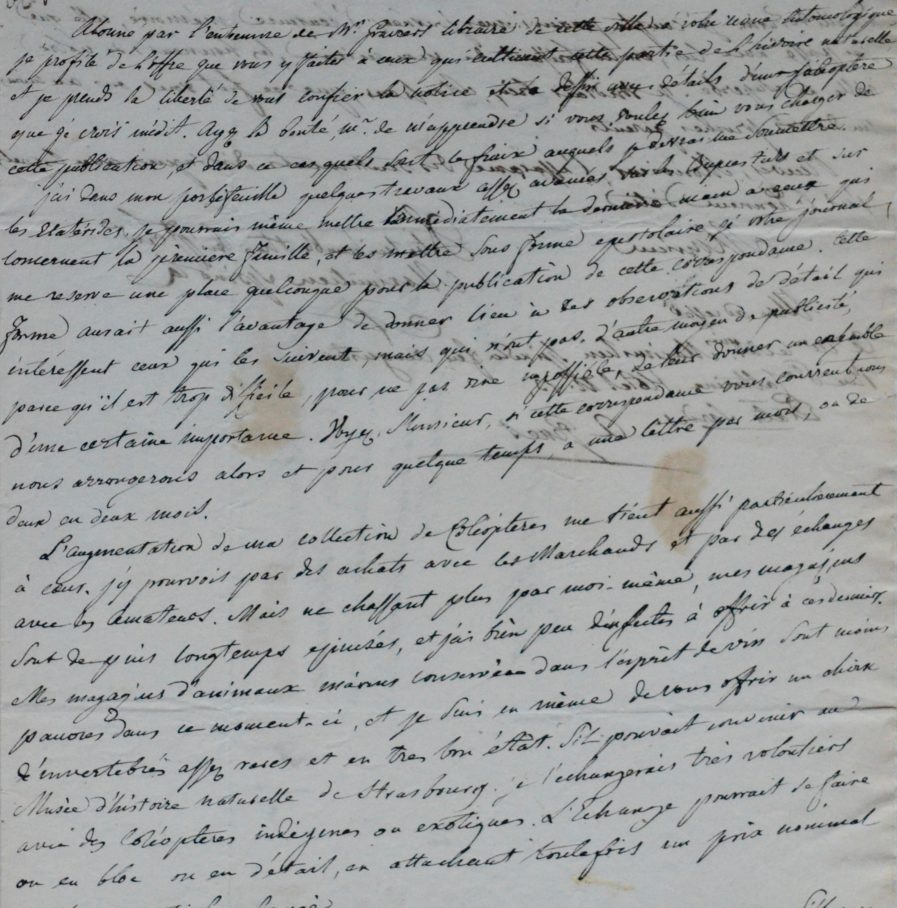 Abonné par l'entremise de Mr. Gravier libraire de cette ville à votre revue entomologique
je profite de l'offre que vous y faites à ceux qui cultivent cette partie de l'histoire naturelle
et je prends la liberté de vous confier la notice et le dessin avec détails d'un coléoptère
que je crois inédit. Ayez la bonté mr. de m'apprendre si vous voulez bien vous charger de
cette publication et dans ce cas quels sont les fraix auxquels je devrai me soumettre.
j'ai dans mon portefeuille quelques travaux assez avancés sur les Buprestides et sur
les Elatérides. je pourrais même mettre immédiatement la dernière main à ceux qui
concernent la première famille, et les mettre sous forme epistolaire si votre journal
me reserve une place quelconque pour la publication de cette correspondance. Cette
forme aurait aussi l'avantage de donner lieu à des observations de détail qui
intéressent ceux qui les suivent, mais qui n'ont pas d'autre moyen de publicité,
parce qu'il est trop difficile, pour ne pas dire impossible, de leur donner un ensemble
d'une certaine importance. Voyez, Monsieur, si cette correspondance vous convient nous
nous arrangerons alors et pour quelque temps, à une lettre par mois, ou de
deux en deux mois.
L'augmentation de ma collection de Coléoptères me tient aussi particulièrement
à cœur. j'y pourvois par des achats avec les Marchands et par des échanges
avec les amateurs. Mais ne chassant plus par moi-même, mes magasins
sont depuis longtemps épuisés, et j'ai bien peu d'insectes à offrir à ces derniers.
Mes magasins d'animaux marins conservés dans l'esprit de vin sont moins
pauvres dans ce moment-ci, et je suis en même de vous offrir un choix
d'invertebrés assez rares et en tres bon état. S'il pouvait convenir au
Musée d'histoire naturelle de Strasbourg. je l'echangerais très volontiers
avec des Coléoptères indigènes ou exotiques. L'Echange pourrait se faire
ou en bloc ou en détail, en attachant toutefois un prix nominal